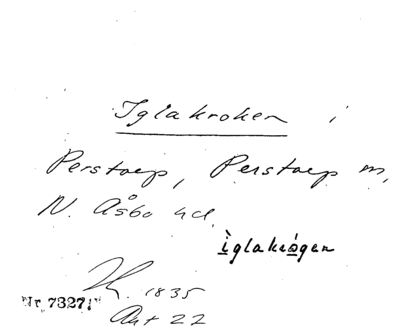 Iglakroken i
Perstorp, Perstorp sn,
N. Åsbo hd.
ìglakrógen
1835
Akt 22
Nr. 7327